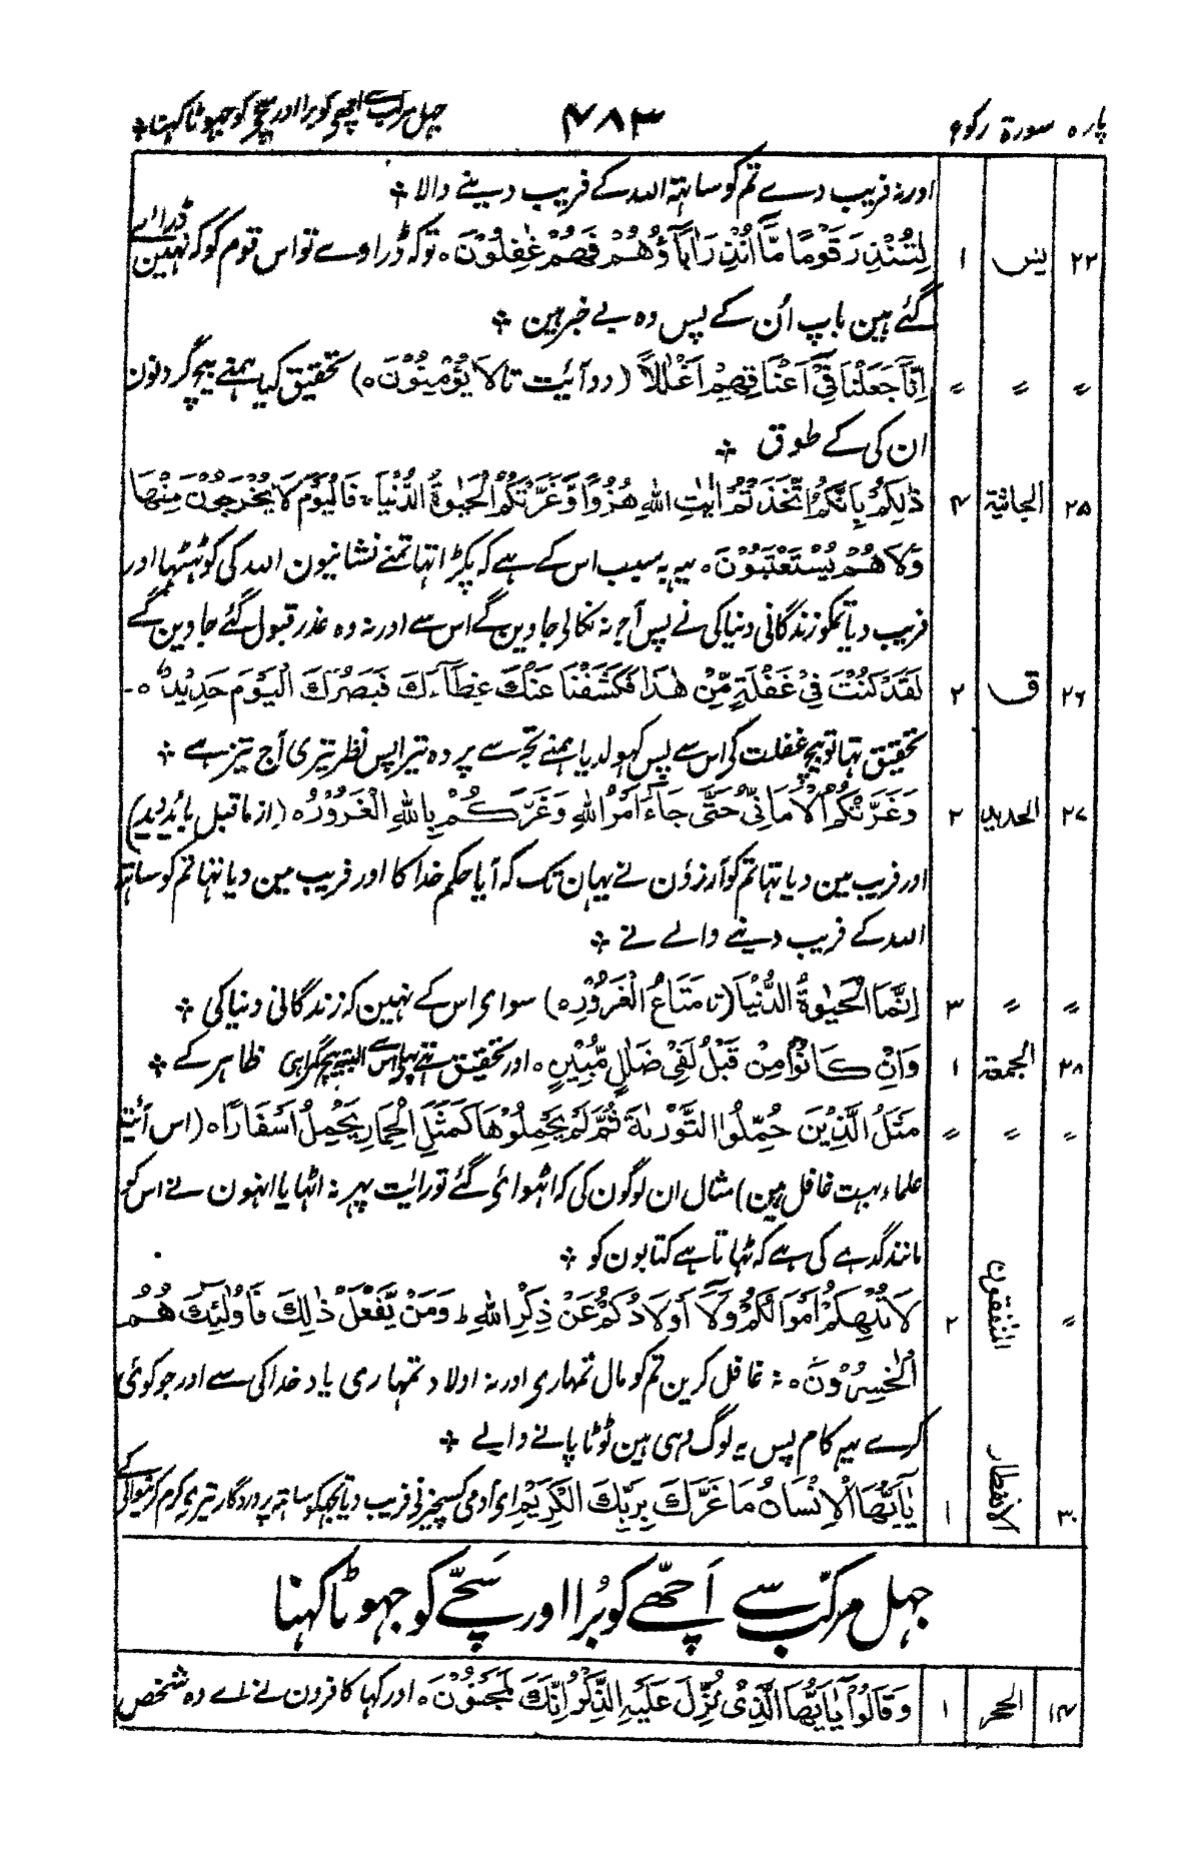 پارہ سورۃ رکوع ۴۸۳ جہل مرکب سے اچھی کو برا اور سچے کو جہوٹا کہنا ٭
اور نہ فریب دے تم کو ساتہہ اللہ کے فریب دینے والا ٭
۲۲ یٰس ۱ لِتُنْذِرَ قَوْمًا مَّآ اُنْذِرَ اٰبَآؤُهُمْ فَهُمْ غٰفِلُوْنَ ہ توکہ ڈراوے تو اس قوم کو کہ نہین ڈرائے
گئے ہین باپ اُن کے پس وہ بے خبر ہین ٭
〃 〃 〃 اِنَّا جَعَلْنَا فِیْٓ اَعْنَاقِهِمْ اَغْلٰلًا (دو آئیت تا لَا یُؤْمِنُوْنَ ہ) تحقیق کیا ہمنے بیچ گردنون
ان کی کے طوق ٭
۲۵ الجاثیة ۴ ذٰلِكُمْ بِاَنَّكُمُ اتَّخَذْتُمْ اٰیٰتِ اللّٰهِ هُزُوًا وَّغَرَّتْكُمُ الْحَیٰوةُ الدُّنْیَا ۚ فَالْیَوْمَ لَا یُخْرَجُوْنَ مِنْهَا
وَلَا هُمْ یُسْتَعْتَبُوْنَ ہ یہہ بہ سبب اس کے ہے کہ پکڑا تہا تمنے نشانیون اللہ کی کو ٹہٹہا اور
فریب دیا تمکو زندگانی دنیا کی نے پس آج نہ نکالی جاوین گے اس سے اور نہ وہ عذر قبول کئے جاوین گے
۲۶ ق ۲ لَقَدْ كُنْتَ فِیْ غَفْلَةٍ مِّنْ هٰذَا فَكَشَفْنَا عَنْكَ غِطَآءَكَ فَبَصَرُكَ الْیَوْمَ حَدِیْدٌ ہ
تحقیق تہا تو بیچ غفلت کی اس سے پس کہولدیا ہمنے تجہ سے پردہ تیرا پس نظر تیری آج تیز ہے ٭
۲۷ الحدید ۲ وَغَرَّتْكُمُ الْاَمَانِیُّ حَتّٰی جَآءَ اَمْرُ اللّٰهِ وَغَرَّكُمْ بِاللّٰهِ الْغَرُوْرُ ہ (از ماقبل باید دید)
اور فریب مین دیا تہا تم کو آرزؤن نے یہان تک کہ آیا حکم خدا کا اور فریب مین دیا تہا تم کو ساتہہ
اللہ کے فریب دینے والے نے ٭
〃 〃 ۳ اِنَّمَا الْحَیٰوةُ الدُّنْیَا (تا مَتَاعُ الْغُرُوْرِ ہ) سوای اس کے نہین کہ زندگانی دنیا کی ٭
۲۸ الجمعة ۱ وَاِنْ كَانُوْا مِنْ قَبْلُ لَفِیْ ضَلٰلٍ مُّبِیْنٍ ہ اور تحقیق تہے پہلے اس سے البتہ بیچ گمراہی ظاہر کے ٭
〃 〃 〃 مَثَلُ الَّذِیْنَ حُمِّلُوا التَّوْرٰىةَ ثُمَّ لَمْ یَحْمِلُوْهَا كَمَثَلِ الْحِمَارِ یَحْمِلُ اَسْفَارًا ہ (اس آئیتہ
علماء بہت غافل ہین) مثال ان لوگون کی کہ اٹہوائی گئے تورات پہر نہ اٹہایا انہون نے اس کو
مانند گدہے کی ہے کہ ٹہاتا ہے کتابون کو ٭
〃 المنٰفقون ۲ لَا تُلْهِكُمْ اَمْوَالُكُمْ وَلَآ اَوْلَادُكُمْ عَنْ ذِكْرِ اللّٰهِ ط وَمَنْ یَّفْعَلْ ذٰلِكَ فَاُولٰٓئِكَ هُمُ
الْخٰسِرُوْنَ ہ نہ غافل کرین تم کو مال تمہاری اور نہ اولاد تمہاری یاد خدا کی سے اور جو کوئی
کرے یہہ کام پس یہ لوگ وہی ہین ٹوٹا پانے والے ٭
۳۰ الانفطار ۱ یٰٓاَیُّهَا الْاِنْسَانُ مَا غَرَّكَ بِرَبِّكَ الْكَرِیْمِ ای آدمی کسچیز نی فریب دیا تجہکو ساتہہ پروردگار تیری کرم کرنیوالی کے
جہل مرکب سے اَچھے کو بُرا اور سَچّے کو جہوٹا کہنا
۱۴ الحجر ۱ وَقَالُوْا یٰٓاَیُّهَا الَّذِیْ نُزِّلَ عَلَیْهِ الذِّكْرُ اِنَّكَ لَمَجْنُوْنٌ ہ اور کہا کافرون نے اے وہ شخص